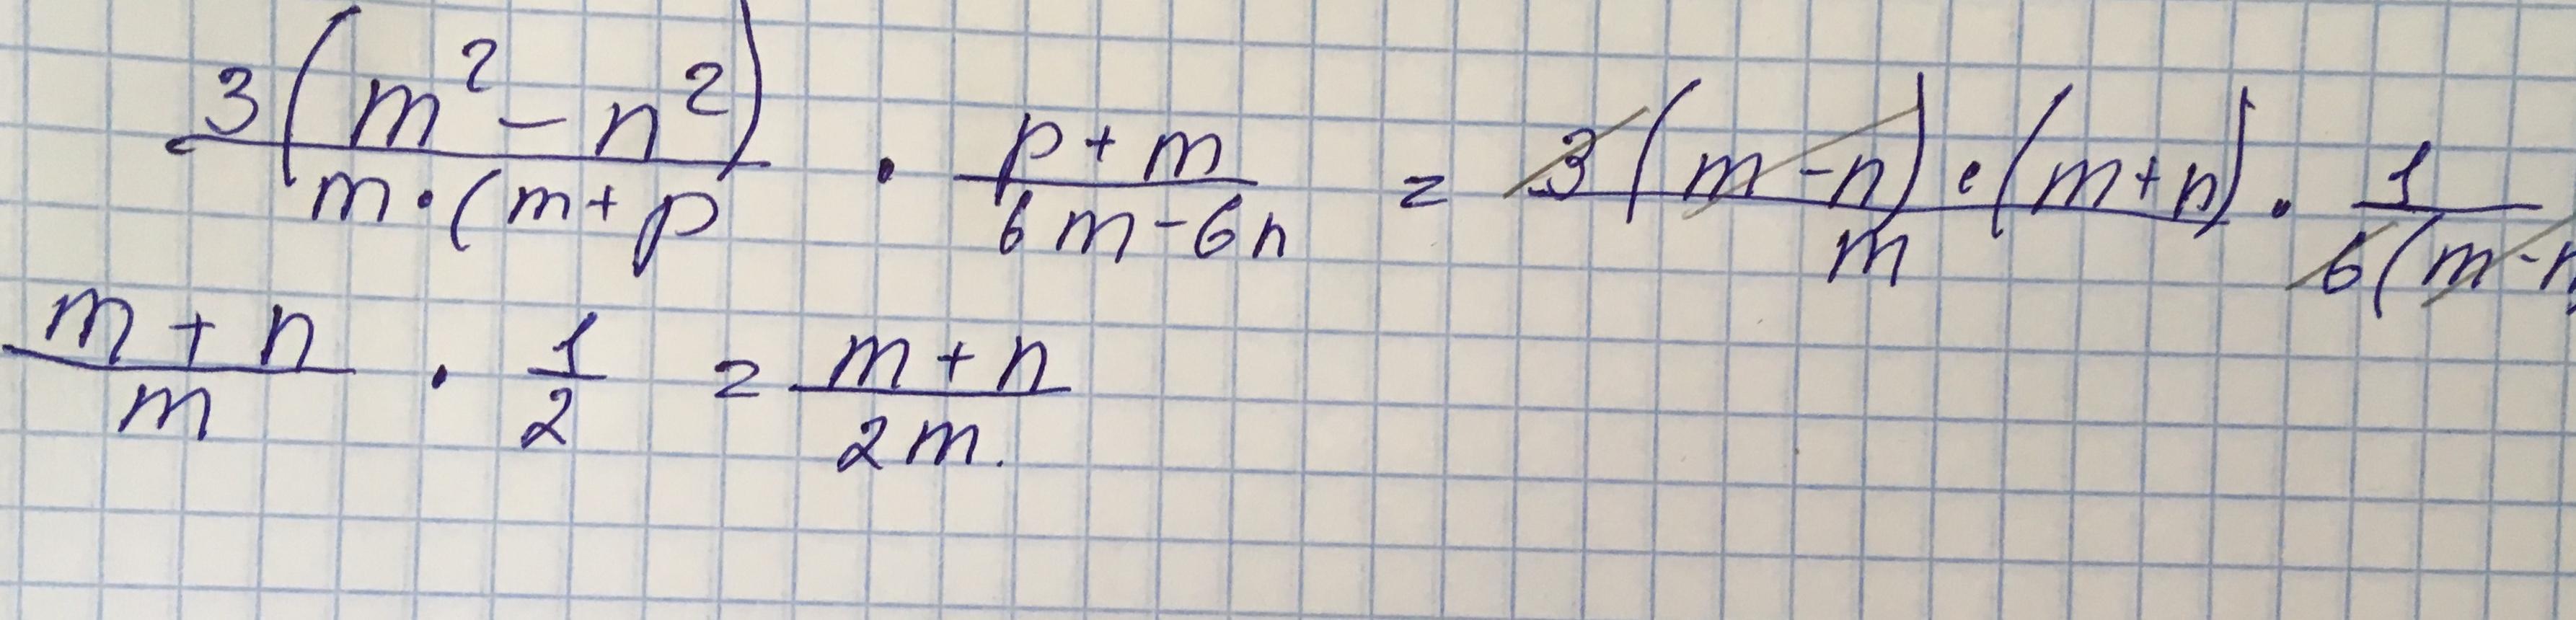 3(m² - n²)/m·(m+p · p+m/6m-6n = 3(m-n)·(m+n)/m · 1/6(m-n
m+n/m · 1/2 = m+n/2m.